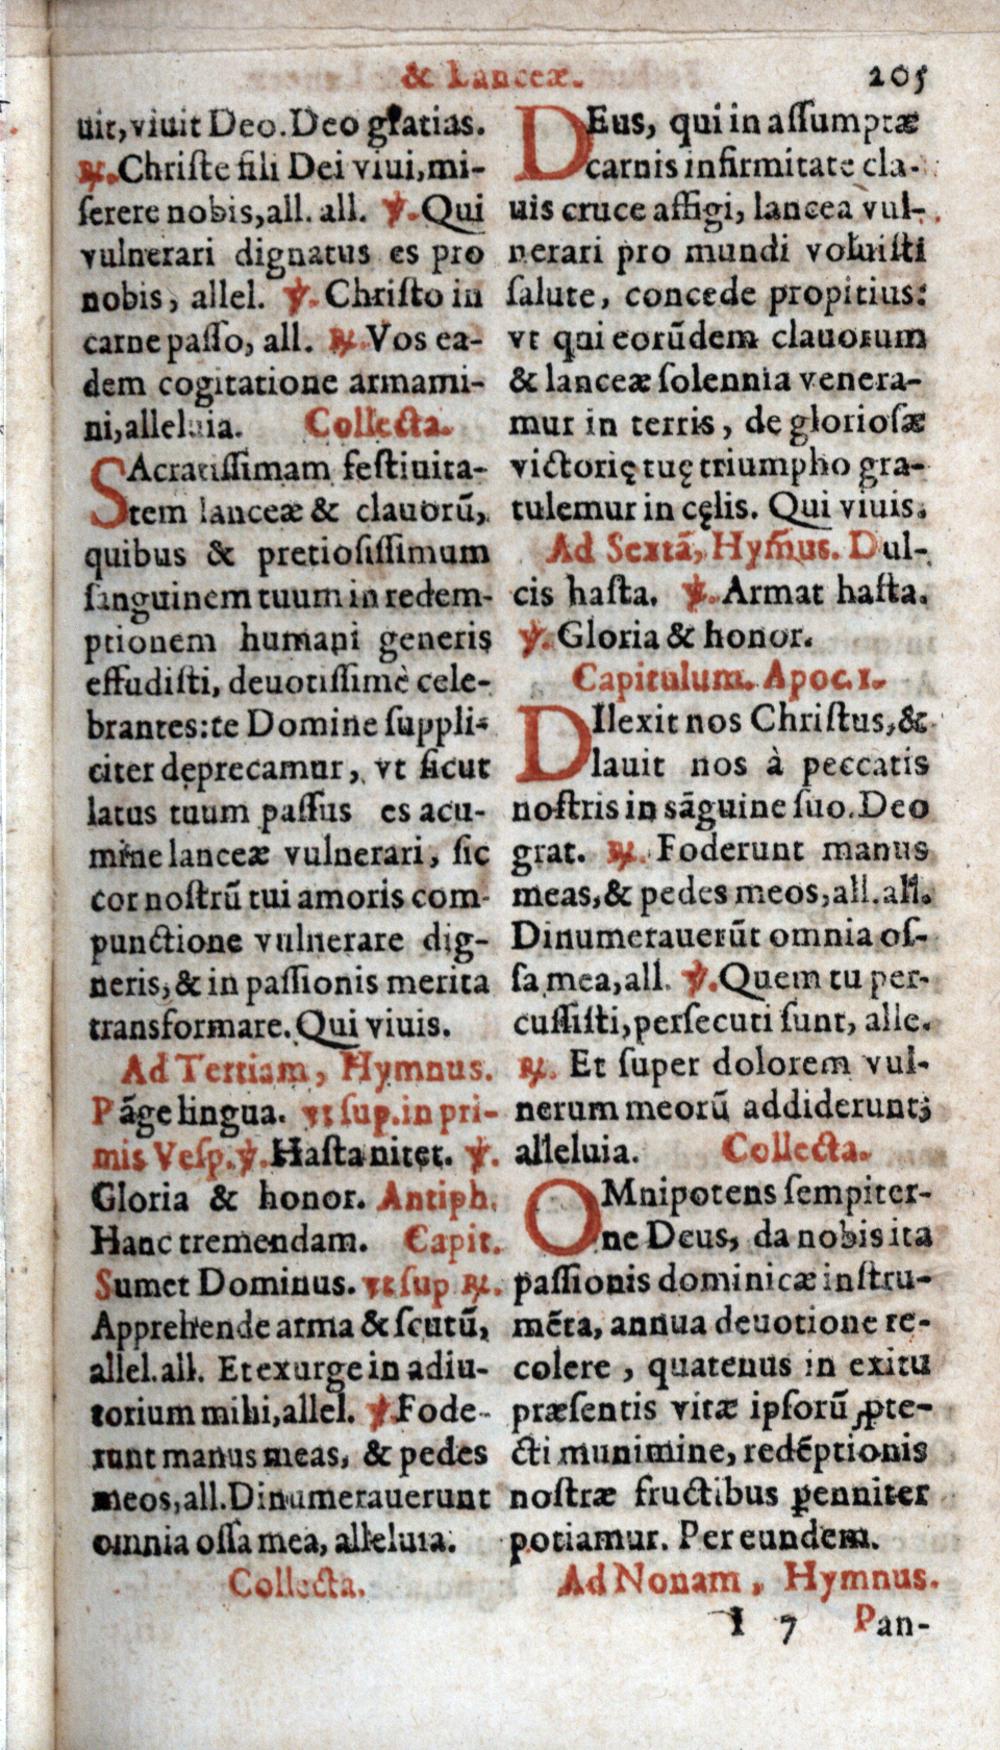 & Lanceæ.
205
uit, viuit Deo. Deo gratias.
℟. Christe fili Dei viui, mi-
serere nobis, all. all. ℣. Qui
vulnerari dignatus es pro
nobis, allel. ℣. Christo in
carne passo, all. ℟. Vos ea-
dem cogitatione armami-
ni, alleluia. Collecta.
SAcratissimam festiuita-
tem lanceæ & clauorū,
quibus & pretiosissimum
sanguinem tuum in redem-
ptionem humani generis
effudisti, deuotissimè cele-
brantes: te Domine suppli-
citer deprecamur, vt sicut
latus tuum passus es acu-
mine lanceæ vulnerari, sic
cor nostrū tui amoris com-
punctione vulnerare dig-
neris, & in passionis merita
transformare. Qui viuis.
Ad Tertiam, Hymnus.
Pāge lingua. vt sup. in pri-
mis Vesp. ℣. Hasta nitet. ℣.
Gloria & honor. Antiph.
Hanc tremendam. Capit.
Sumet Dominus. vt sup ℟.
Apprehende arma & scutū,
allel. all. Et exurge in adiu-
torium mihi, allel. ℣. Fode-
runt manus meas, & pedes
meos, all. Dinumerauerunt
omnia ossa mea, alleluia.
Collecta.
DEus, qui in assumptæ
carnis infirmitate cla-
uis cruce affigi, lancea vul-
nerari pro mundi voluisti
salute, concede propitius:
vt qui eorūdem clauorum
& lanceæ solennia venera-
mur in terris, de gloriosæ
victorię tuę triumpho gra-
tulemur in cęlis. Qui viuis.
Ad Sextā, Hym̄us. Dul-
cis hasta. ℣. Armat hasta.
℣. Gloria & honor.
Capitulum. Apoc. 1.
DIlexit nos Christus, &
lauit nos à peccatis
nostris in sāguine suo. Deo
grat. ℟. Foderunt manus
meas, & pedes meos, all. all.
Dinumerauerūt omnia os-
sa mea, all. ℣. Quem tu per-
cussisti, persecuti sunt, alle.
℟. Et super dolorem vul-
nerum meorū addiderunt;
alleluia. Collecta.
OMnipotens sempiter-
ne Deus, da nobis ita
passionis dominicæ instru-
mēta, annua deuotione re-
colere, quatenus in exitu
præsentis vitæ ipsorū ꝓte-
cti munimine, redēptionis
nostræ fructibus ꝑenniter
potiamur. Per eundem.
Ad Nonam, Hymnus.
I 7 Pan-